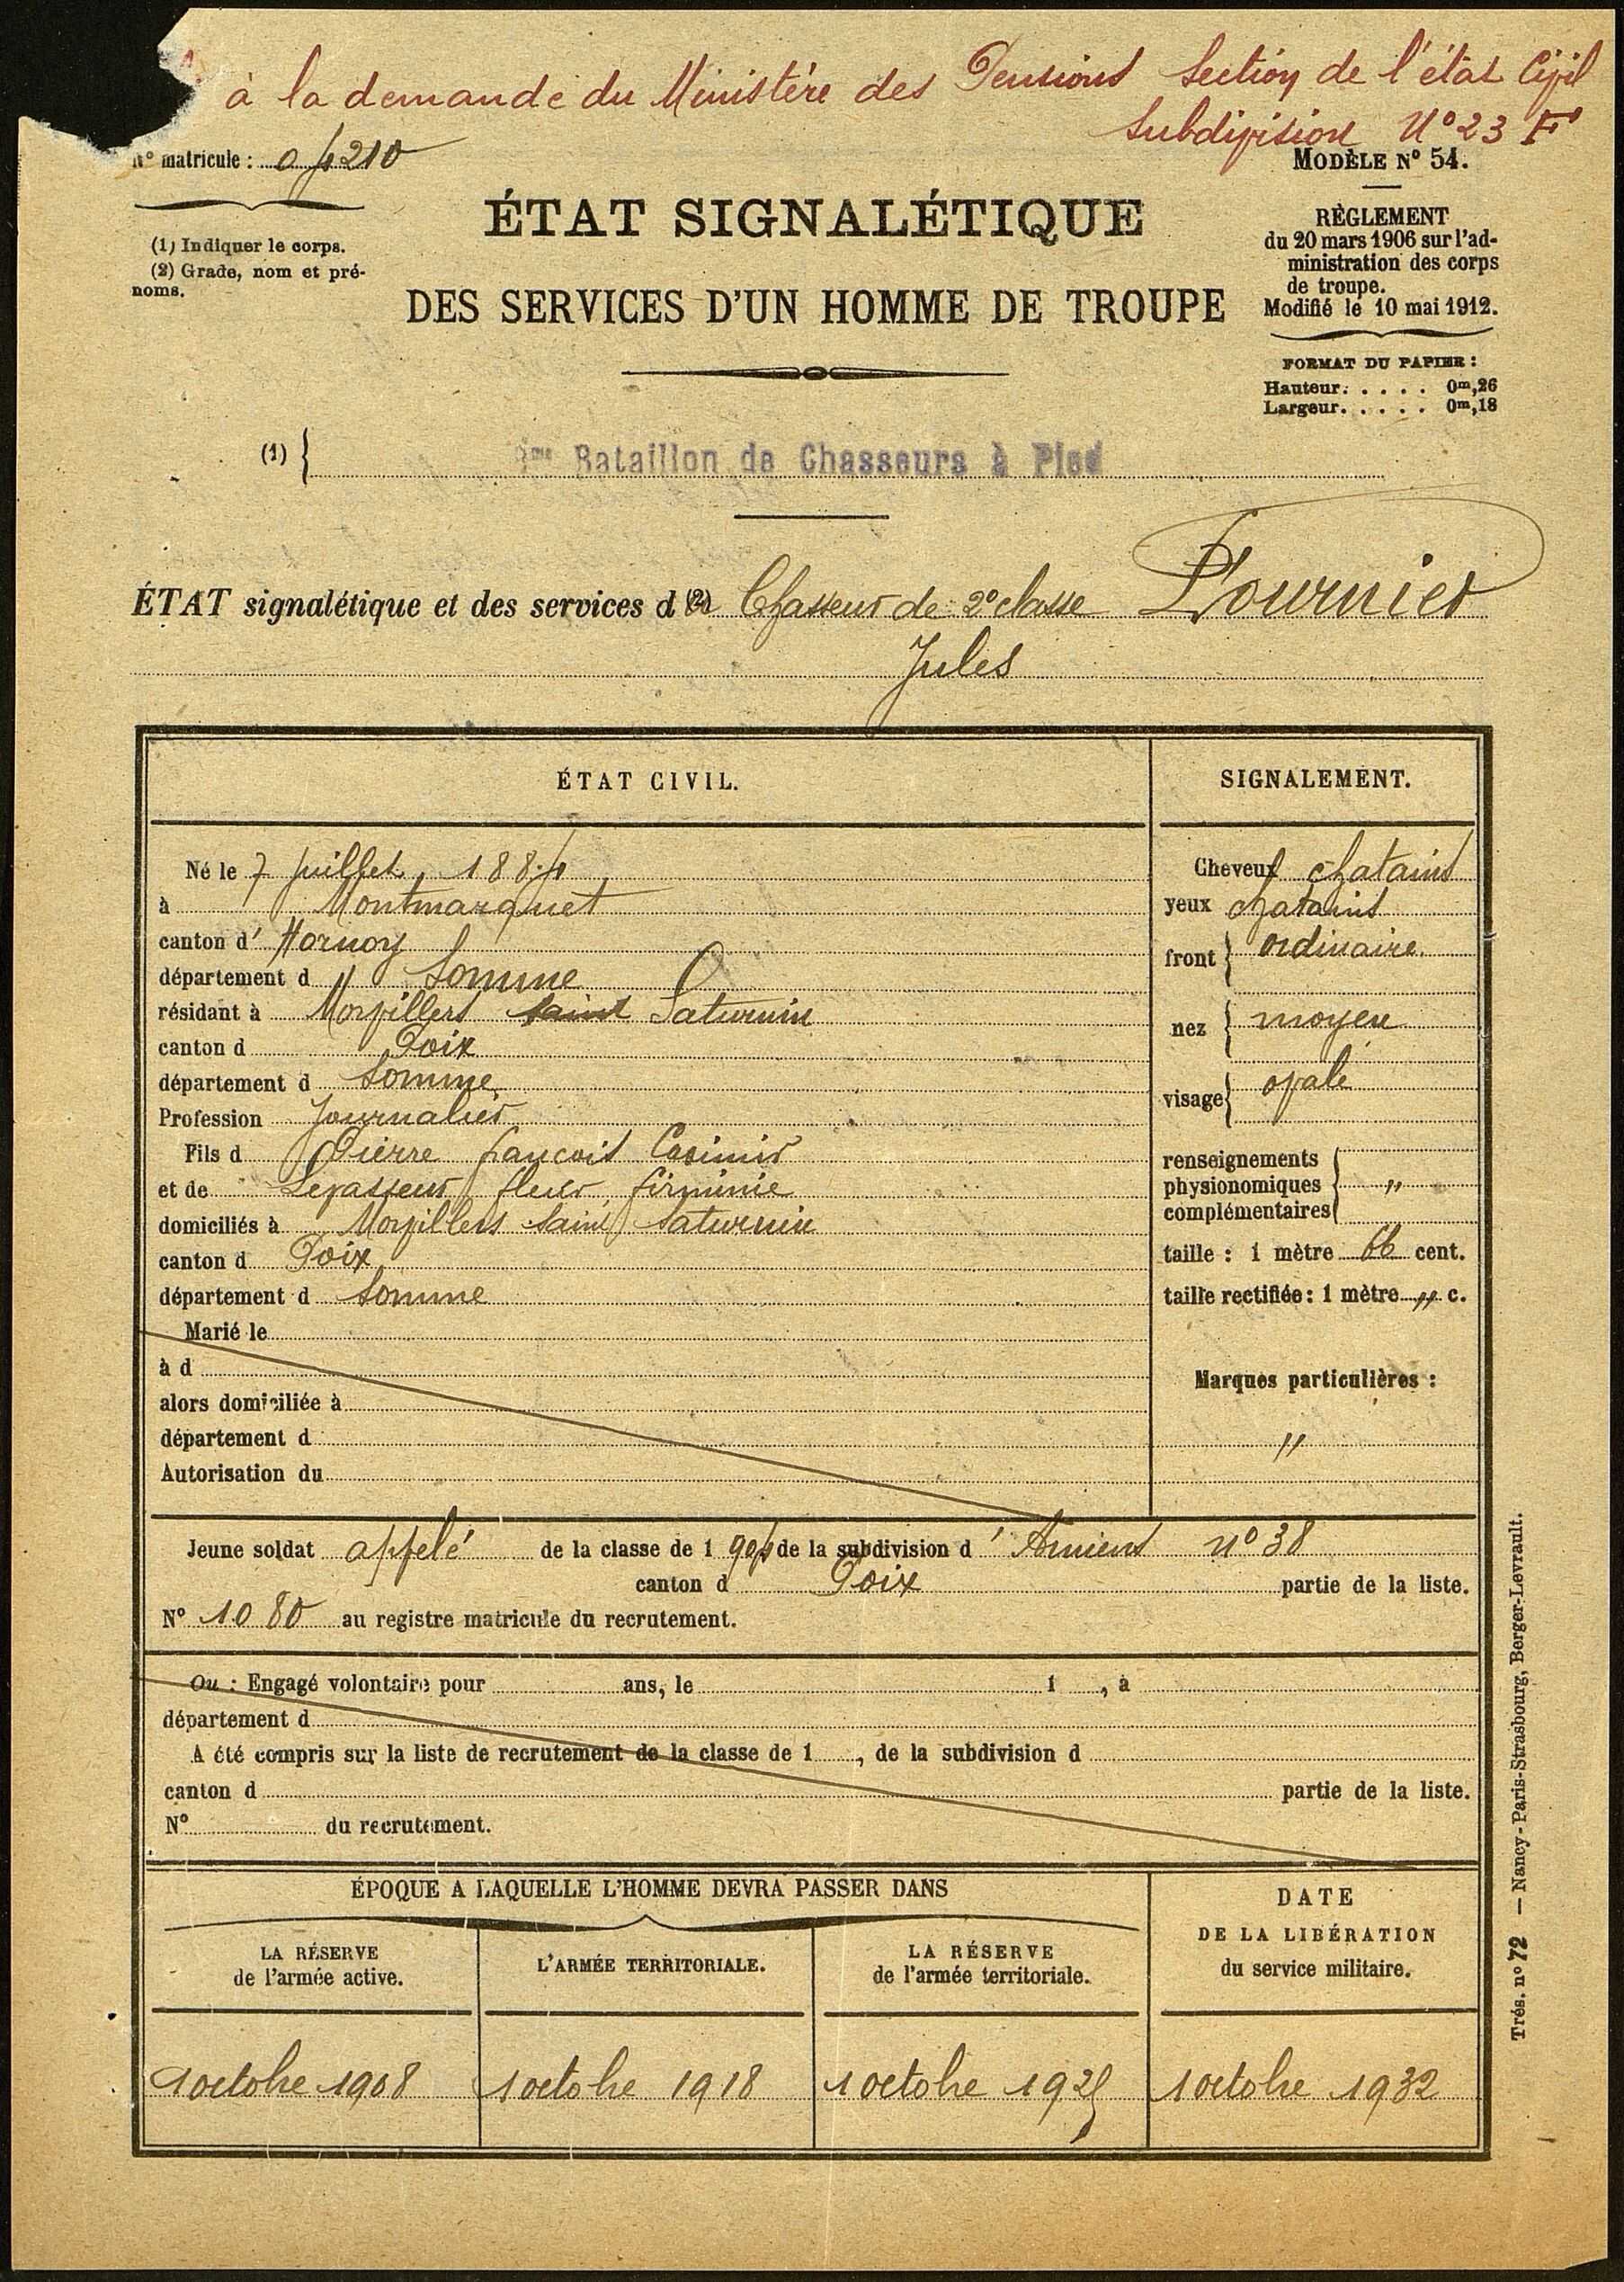 à la demande du Ministère des Pensions Section de l'état Civil
Subdivision N° 23 F
N° matricule : 04210
MODÈLE N° 54.
(1) Indiquer le corps.
(2) Grade, nom et pré-
noms.
ÉTAT SIGNALÉTIQUE
DES SERVICES D'UN HOMME DE TROUPE
RÈGLEMENT
du 20 mars 1906 sur l'ad-
ministration des corps
de troupe.
Modifié le 10 mai 1912.
FORMAT DU PAPIER :
Hauteur. . . . . 0m,26
Largeur. . . . . 0m,18
(1) { Bataillon de Chasseurs à Pied
ÉTAT signalétique et des services d (2) Chasseur de 2e classe Fournier
Jules
ÉTAT CIVIL.
Né le 7 juillet 1884
à Montmarquet
canton d' Hornoy
département d Somme
résidant à Morvillers Saint Saturnin
canton d Poix
département d Somme
Profession Journalier
Fils d Pierre francois Casimir
et de Levasseur fleur firminie
domiciliés à Morvillers Saint Saturnin
canton d Poix
département d Somme
Marié le
à d
alors domiciliée à
département d
Autorisation du
SIGNALEMENT.
Cheveux chatains
yeux chatains
front { ordinaire
nez { moyen
visage { ovale
renseignements
physionomiques { "
complémentaires
taille : 1 mètre 66 cent.
taille rectifiée : 1 mètre " c.
Marques particulières :
"
Jeune soldat appelé de la classe de 1904 de la subdivision d' Amiens n° 38
canton d Poix partie de la liste.
N° 1080 au registre matricule du recrutement.
Ou : Engagé volontaire pour ans, le 1 , à
département d
A été compris sur la liste de recrutement de la classe de 1 , de la subdivision d
canton d partie de la liste.
N° du recrutement.
ÉPOQUE A LAQUELLE L'HOMME DEVRA PASSER DANS
LA RÉSERVE
de l'armée active.
L'ARMÉE TERRITORIALE.
LA RÉSERVE
de l'armée territoriale.
DATE
DE LA LIBÉRATION
du service militaire.
1 octobre 1908
1 octobre 1918
1 octobre 1925
1 octobre 1932
Trés. n° 72 — Nancy-Paris-Strasbourg, Berger-Levrault.